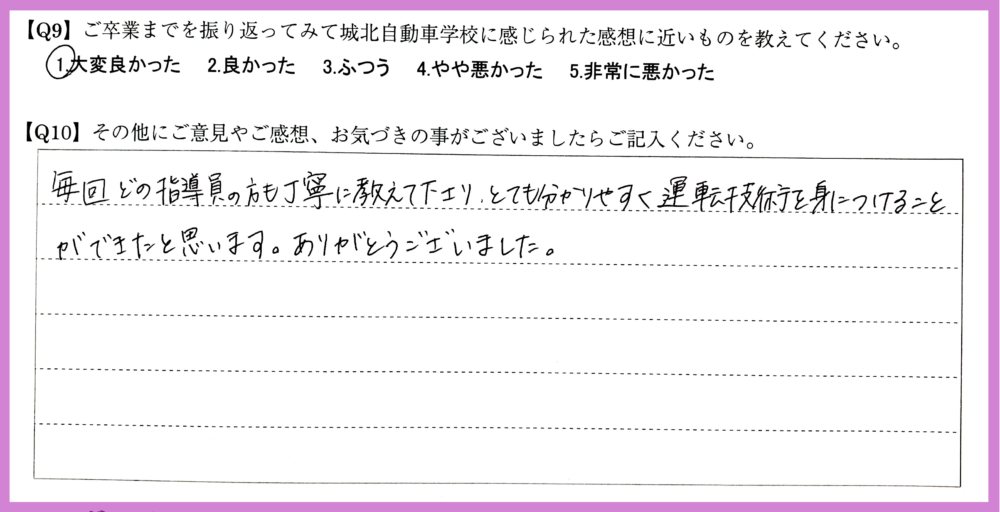 【Q9】ご卒業までを振り返ってみて城北自動車学校に感じられた感想に近いものを教えてください。
1.大変良かった 2.良かった 3.ふつう 4.やや悪かった 5.非常に悪かった
【Q10】その他にご意見やご感想、お気づきの事がございましたらご記入ください。
毎回どの指導員の方も丁寧に教えて下さり、とても分かりやすく運転技術を身につけること
ができたと思います。ありがとうございました。